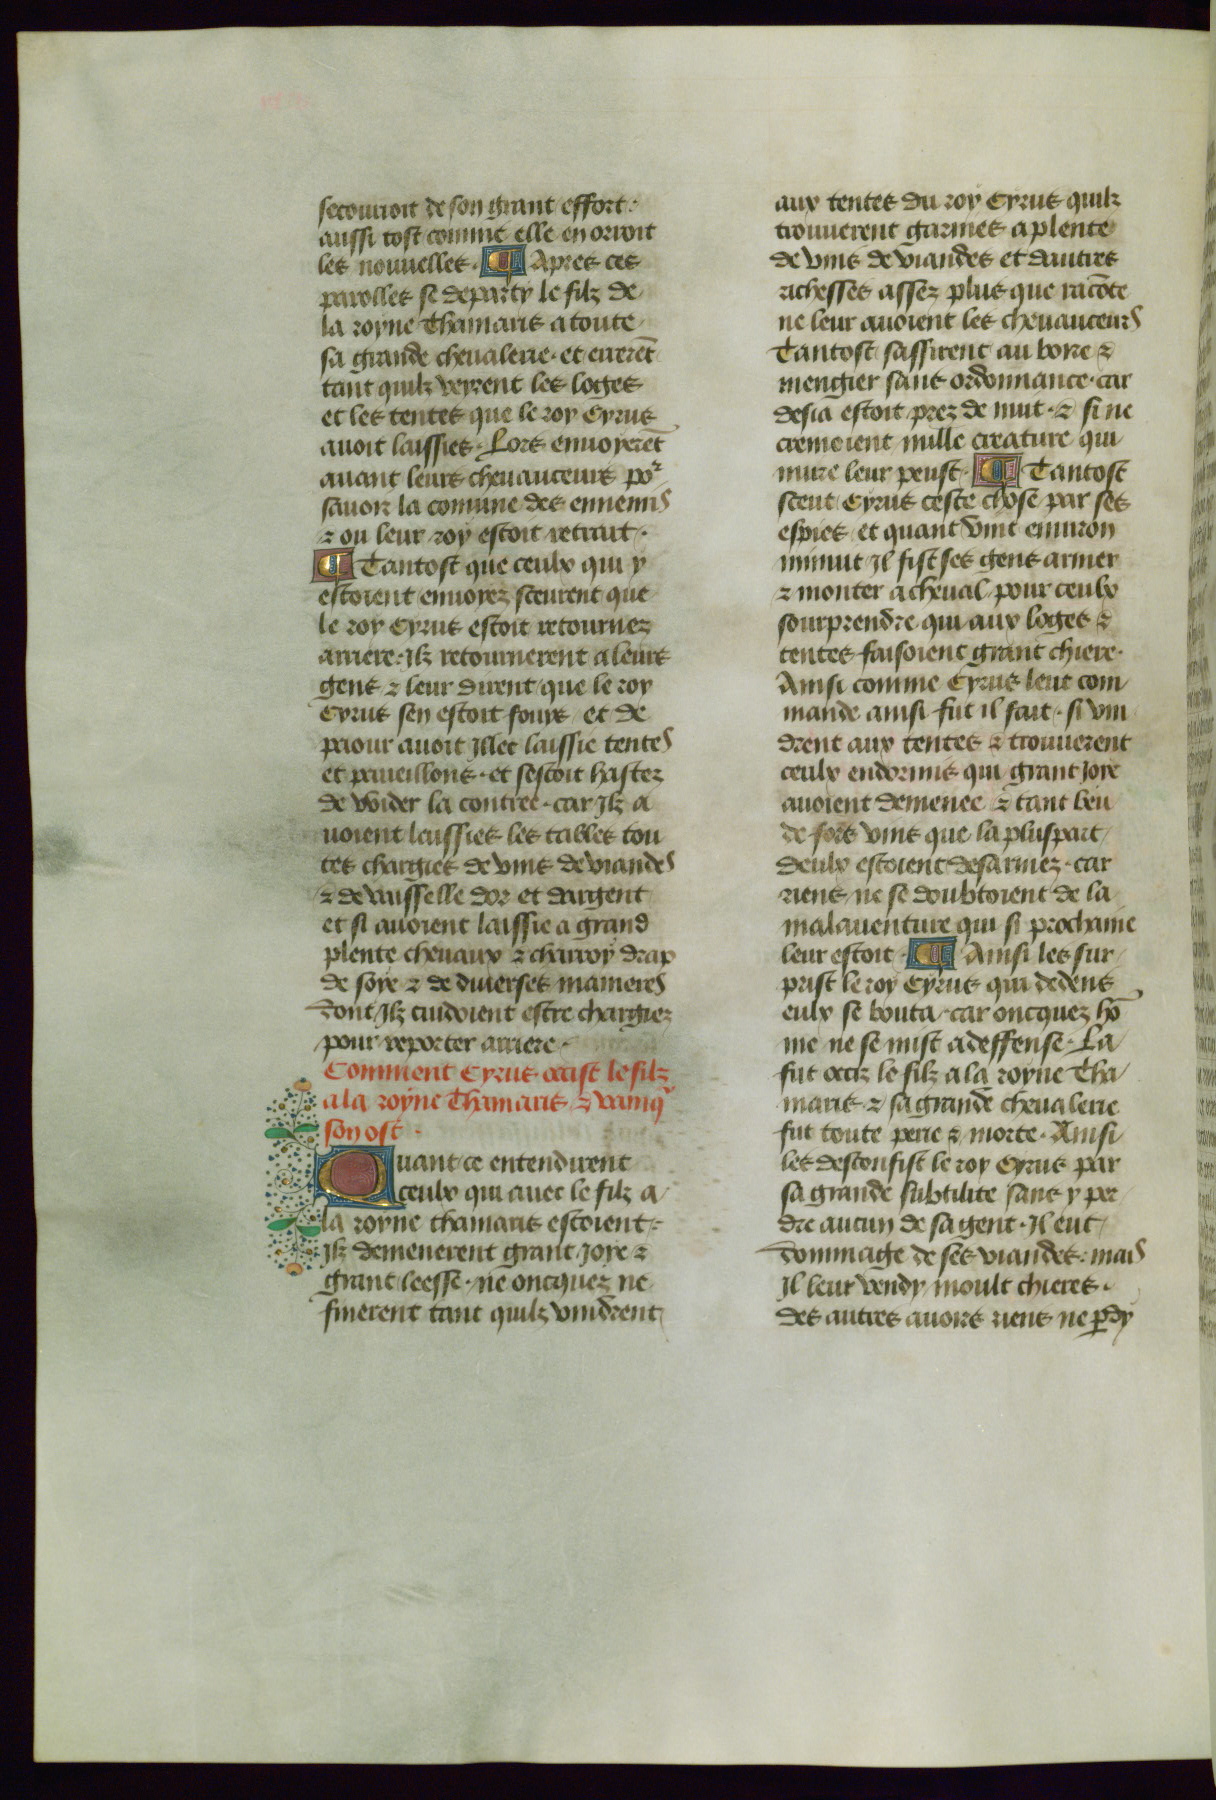 secouroit de son grant effort.
aussi tost comme elle en orroit
les nouuelles. Apres ces
parolles se departy le filz de
la royne Thamaris a toute
sa grande cheualerie. et errerēt
tant quilz veyrent les loges
et les tentes que le roy Cyrus
auoit laissies. Lors enuoyerēt
auant leurs cheuauceurs poʳ
sauoir la comune des ennemis
⁊ ou leur roy estoit retrait.
Tantost que ceulx qui y
estoient enuoyez sceurent que
le roy Cyrus estoit retournez
arriere. Ilz retournerent a leurs
gens ⁊ leur dirent que le roy
Cyrus sen estoit fouys et de
paour auoit illec laissie tentes
et paueillons. et sestoit hastez
de voider la contree. car ilz a
uoient laissies les tables tou
tes chargies de vins de viandes
⁊ de vaisselle dor et dargent
et si auoient laissie a grand
plente cheuaux ⁊ charroy drap
de soye ⁊ de diuerses manieres
dont ilz cuidoient estre chargiez
pour reporter arriere.
Comment Cyrus occist le filz
a la royne Thamaris ⁊ vainqͥ
son ost.
Quant ce entendirent
ceulx qui auec le filz a
la royne thamaris estoient.
Ilz demenerent grant ioye ⁊
grant leesse. ne oncquez ne
finerent tant quilz vindrent
aux tentes du roy Cyrus quilz
trouuerent garnies a plente
de vins de viandes et dautres
richesses assez plus que racōte
ne leur auoient les cheuauceurs
Tantost sassirent au boire ⁊
mengier sans ordonnance. car
desia estoit prez de nuit. ⁊ si ne
cremoient nulle creature qui
nuire leur peust. Tantost
sceut Cyrus ceste chose par ses
espies et quant vint enuiron
minuit Il fist ses gens armer
⁊ monter a cheual pour ceulx
sourprendre qui aux loges ⁊
tentes faisoient grant chiere.
Ainsi comme Cyrus leut com
mande ainsi fut il fait. si vin
drent aux tentes ⁊ trouuerent
ceulx endormis qui grant ioye
auoient demenee ⁊ tant beu
de fors vins que la pluspart
deulx estoient desarmez. car
riens ne se doubtoient de la
malauenture qui si prochaine
leur estoit. Ainsi les sur
prist le roy Cyrus qui dedens
eulx se bouta. car oncquez hō
me ne se mist a deffense. La
fut occiz le filz a la royne Tha
maris ⁊ sa grande cheualerie
fut toute perie ⁊ morte. Ainsi
les desconfist le roy Cyrus par
sa grande subtilite sans y per
dre aucun de sa gent. Il eut
dommage de ses viandes. mais
Il leur vendy moult chieres.
des autres auoirs riens ne ꝑdy